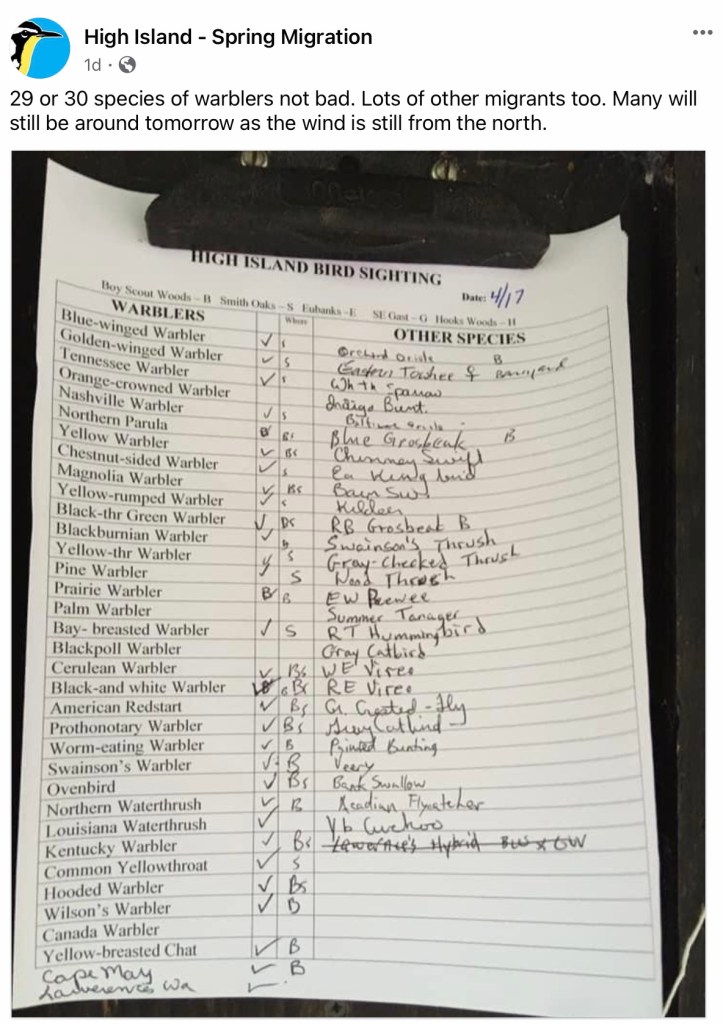 High Island - Spring Migration
1d ·
29 or 30 species of warblers not bad. Lots of other migrants too. Many will
still be around tomorrow as the wind is still from the north.
HIGH ISLAND BIRD SIGHTING
Date: 4/17
Boy Scout Woods – B Smith Oaks – S Eubanks -E SE Gast – G Hooks Woods – H
WARBLERS Where OTHER SPECIES
Blue-winged Warbler ✓ s Orchard Oriole B
Golden-winged Warbler ✓ s Eastern Towhee ♀
Tennessee Warbler ✓ s Wh th Sparrow
Orange-crowned Warbler Indigo Bunt.
Nashville Warbler ✓ s
Northern Parula B Blue Grosbeak B
Yellow Warbler ✓ Bs Chimney Swift
Chestnut-sided Warbler ✓ s Ea King bird
Magnolia Warbler ✓ Bs Barn Swl
Yellow-rumped Warbler ✓ s Killdeer
Black-thr Green Warbler ✓ RB Grosbeak B
Blackburnian Warbler ✓ Swainson's Thrush
Yellow-thr Warbler S Gray-Cheeked Thrush
Pine Warbler S Wood Thrush
Prairie Warbler B B EW Peewee
Palm Warbler Summer Tanager
Bay- breasted Warbler ✓ S RT Hummingbird
Blackpoll Warbler Gray Catbird
Cerulean Warbler ✓ Bs WE Vireo
Black-and white Warbler RE Vireo
American Redstart ✓ Bs Gr. Crested-fly
Prothonotary Warbler ✓ Bs Gray Catbird
Worm-eating Warbler ✓ B Painted Bunting
Swainson's Warbler ✓ B Veery
Ovenbird ✓ Bs Bank Swallow
Northern Waterthrush ✓ B Acadian Flycatcher
Louisiana Waterthrush ✓ Yb Cuckoo
Kentucky Warbler ✓ Bs Lawernce's Hybrid BW x GW
Common Yellowthroat ✓ S
Hooded Warbler ✓ Bs
Wilson's Warbler ✓ B
Canada Warbler
Yellow-breasted Chat ✓ B
Cape May ✓ B
Lawerences Wa ✓